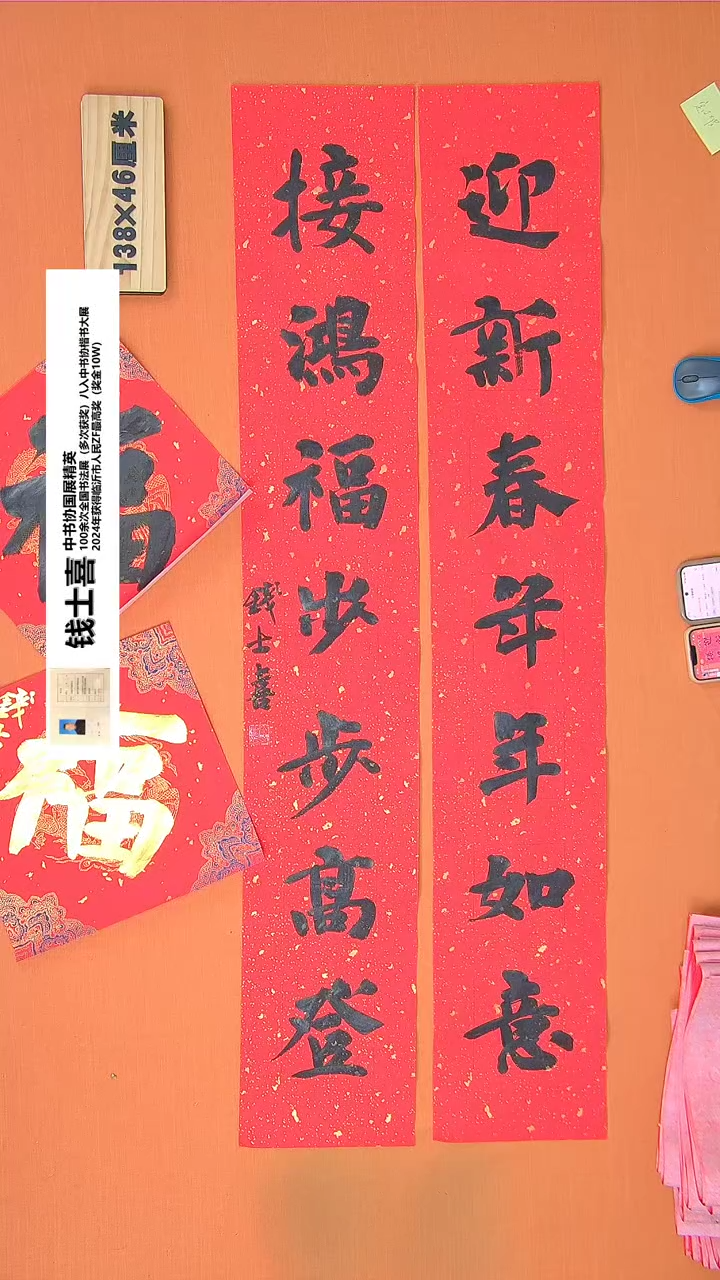 迎新春年年如意
接鴻福步步高登
錢士喜
138×46厘米
钱士喜
中书协国展精英
100余次全国书法展（多次获奖）八入中书协楷书大展
2024年获得临沂市人民ZF最高奖（奖金10W）
福
福